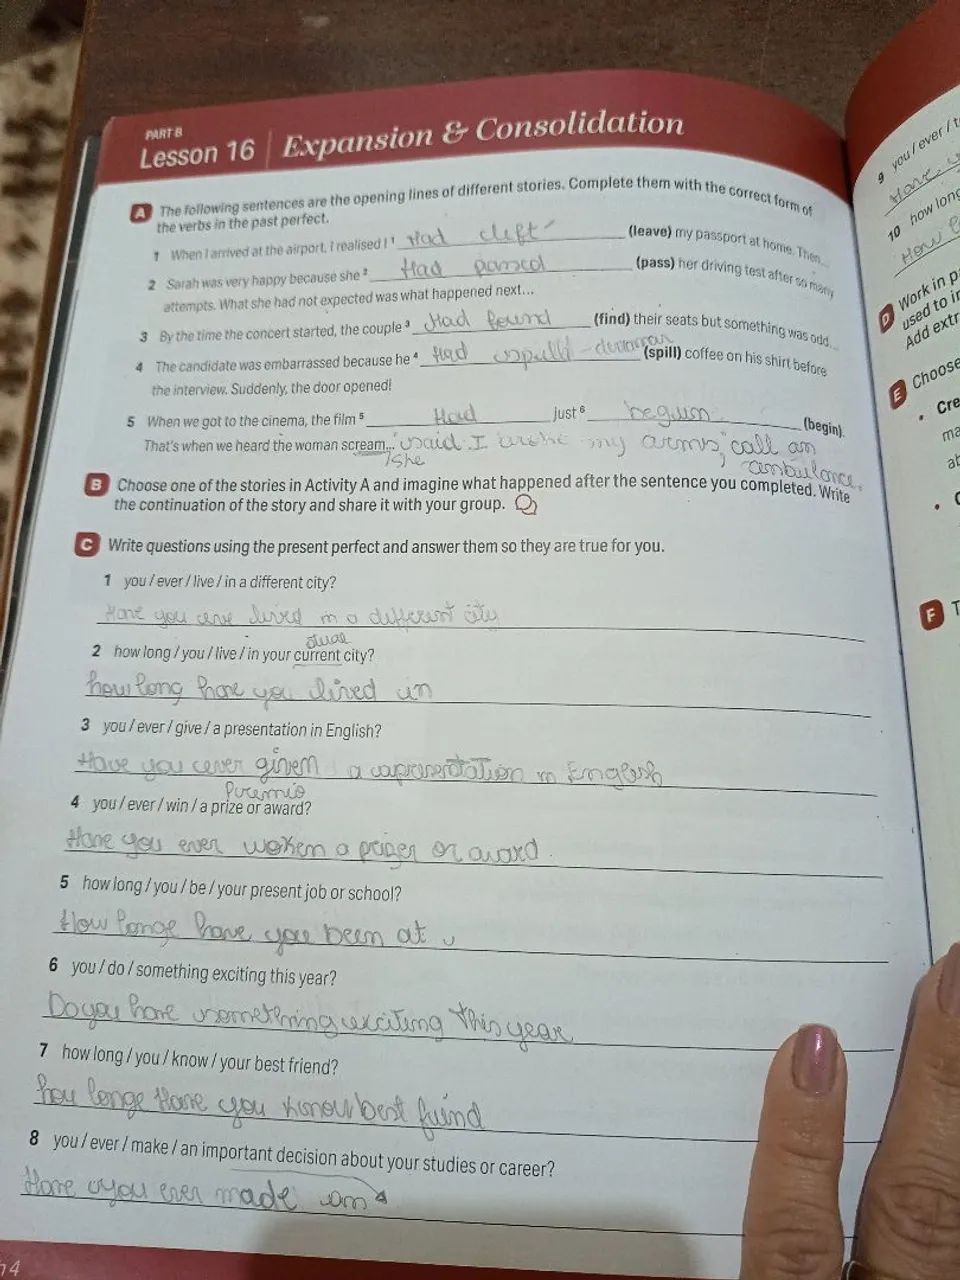 PART B
Lesson 16 | Expansion & Consolidation
A The following sentences are the opening lines of different stories. Complete them with the correct form of
the verbs in the past perfect.
1 When I arrived at the airport, I realised I ¹ Had (leave) my passport at home. Then...
2 Sarah was very happy because she ² Had passed (pass) her driving test after so many
attempts. What she had not expected was what happened next...
3 By the time the concert started, the couple ³ Had found (find) their seats but something was odd...
4 The candidate was embarrassed because he ⁴ Had (spill) coffee on his shirt before
the interview. Suddenly, the door opened!
5 When we got to the cinema, the film ⁵ Had just ⁶ begun (begin).
That's when we heard the woman scream... said I my arms, "call an
she
ambulance.
B Choose one of the stories in Activity A and imagine what happened after the sentence you completed. Write
the continuation of the story and share it with your group.
C Write questions using the present perfect and answer them so they are true for you.
1 you / ever / live / in a different city?
Have you lived in a different city
2 how long / you / live / in your current city?
how long have you lived in
3 you / ever / give / a presentation in English?
Have you ever given a in English
Premio
4 you / ever / win / a prize or award?
Have you ever a or award
5 how long / you / be / your present job or school?
How longe have you been at
6 you / do / something exciting this year?
Do you have something exciting this year
7 how long / you / know / your best friend?
longe Have you know best
8 you / ever / make / an important decision about your studies or career?
Have you ever made an
9 you / ever / t
Have
10 how long
How
D Work in p
used to in
Add extr
E Choose
• Cre
ma
ab
F T